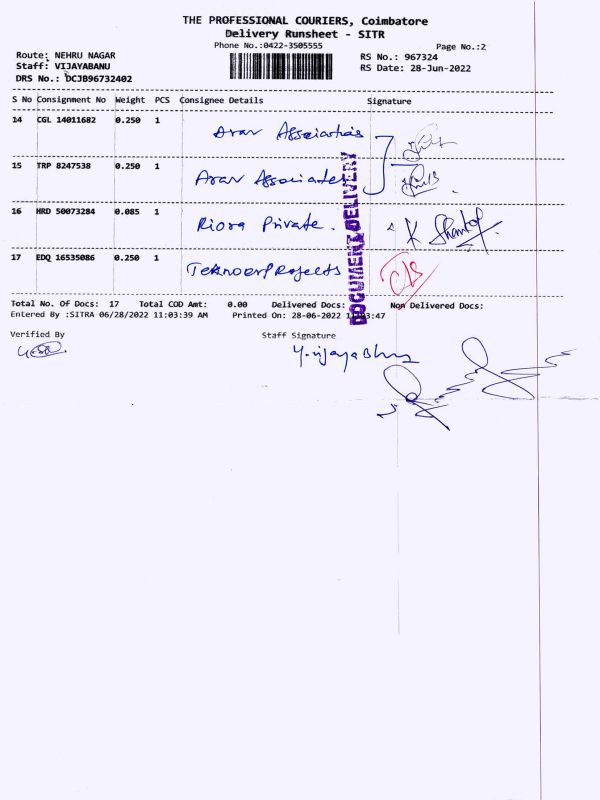 THE PROFESSIONAL COURIERS, Coimbatore
Delivery Runsheet - SITR
Phone No.:0422-3505555
Page No.:2
Route: NEHRU NAGAR
RS No.: 967324
Staff: VIJAYABANU
RS Date: 28-Jun-2022
DRS No.: DCJB96732402
S No Consignment No Weight PCS Consignee Details Signature
14 CGL 14011682 0.250 1 Arav Associates
15 TRP 8247538 0.250 1 Arav Associates
16 HRD 50073284 0.085 1 Riora Private. K
17 EDQ 16535086 0.250 1
DOCUMENT DELIVERY
Total No. Of Docs: 17 Total COD Amt: 0.00 Delivered Docs: Non Delivered Docs:
Entered By :SITRA 06/28/2022 11:03:39 AM Printed On: 28-06-2022 :47
Verified By Staff Signature